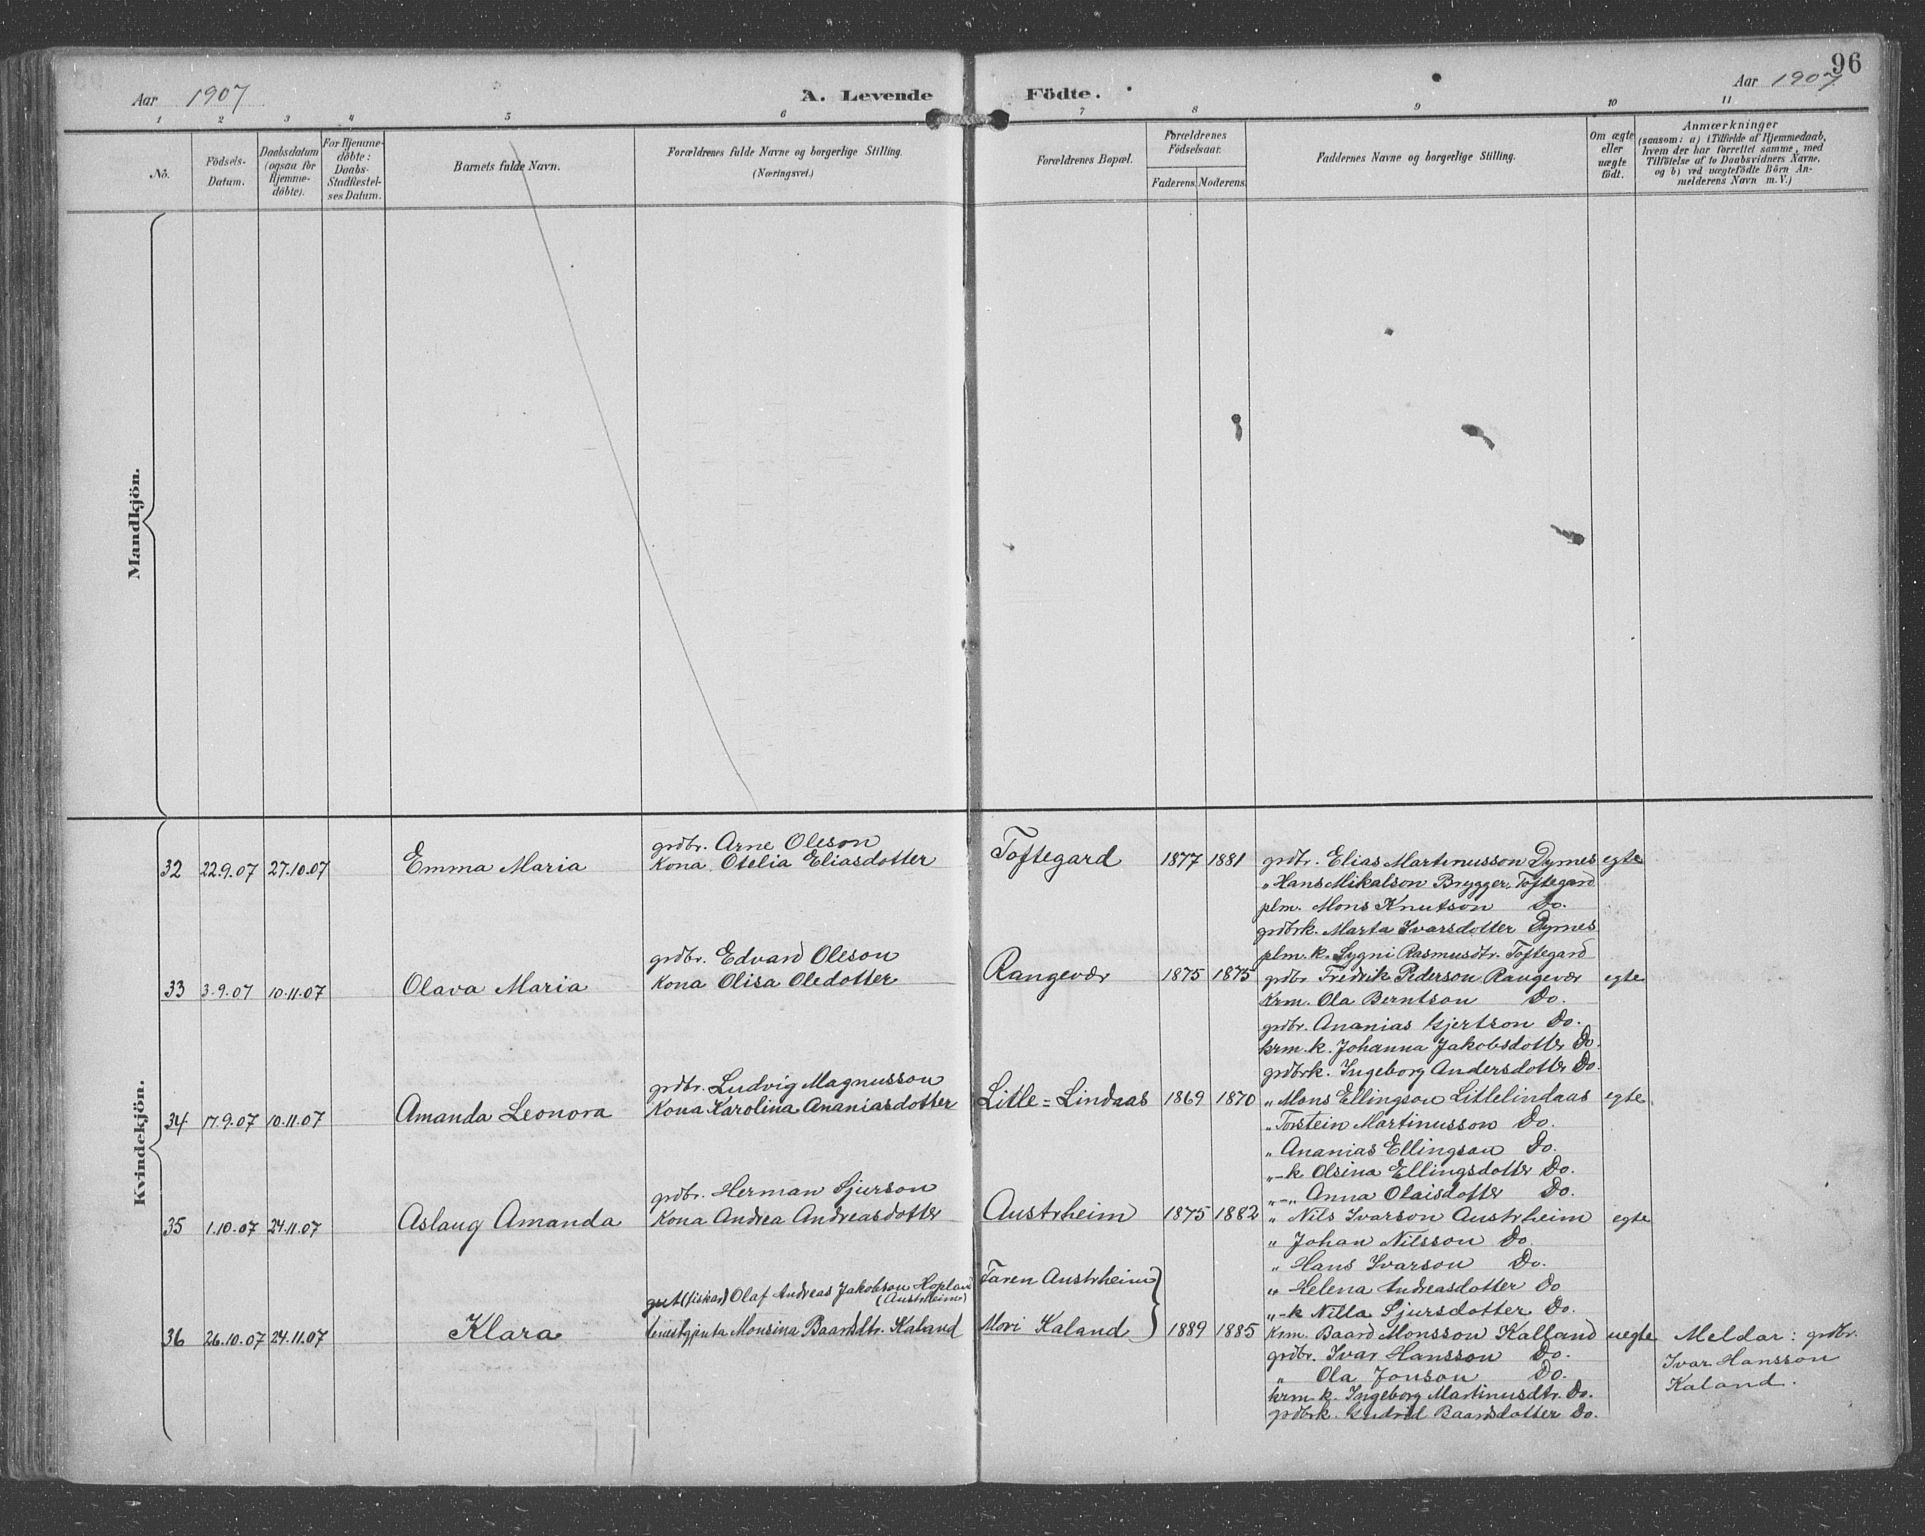 96
Aar 1907 A. Levende Födte. Aar 1907
1 2 3 4 5 6 7 8 9 10 11
No.
Födsels-
Datum.
Daabsdatum
(ogsaa for
Hjemme-
döbte).
For Hjemme-
döbte:
Daabs-
Stadfæstel-
ses Datum.
Barnets fulde Navn.
Forældrenes fulde Navne og borgerlige Stilling.
(Næringsvei.)
Forældrenes Bopæl.
Forældrenes
Födselsaar.
Faderens. Moderens.
Faddernes Navne og borgerlige Stilling.
Om ægte
eller
uægte
födt.
Anmærkninger
(saasom: a) i Tilfælde af Hjemmedaab,
hvem der har forrettet samme, med
Tilföielse af to Daabsvidners Navne,
og b) ved uægtefödte Börn An-
melderens Navn m. V.)
Mandkjön.
Kvindekjön.
grdbr. Arne Oleson
32 22.9.07 27.10.07 Emma Maria Kona Otelia Eliasdotter Toftegard 1877 1881 grdbr. Elias Martinusson Dyrnes egte
„ Hans Mikalson Brygger, Toftegard
plm. Mons Knutson Do.
grdbrk. Marta Ivarsdotter Dyrnes
plm. k. Sygni Rasmusdtr. Toftegard
grdbr. Edvard Oleson
33 3.9.07 10.11.07 Olava Maria Kona Olisa Oledotter Rangevær 1875 1875 grdbr Fredrik Pederson Rangevær egte
Krm. Ola Berntson Do.
grdbr. Ananias Gjertson Do.
krm. k. Johanna Jakobsdotter Do.
grdbrk. Ingeborg Andersdotter Do.
grdbr. Ludvig Magnusson
34 17.9.07 10.11.07 Amanda Leonora Kona Karolina Ananiasdotter Litle=Lindaas 1869 1870 „ Mons Ellingson Litlelindaas egte
„ Torstein Martinusson Do.
„ Ananias Ellingson Do.
„-k Olsina Ellingsdotter Do.
„-„ Anna Olaisdotter Do.
grdbr. Herman Sjurson
35 1.10.07 24.11.07 Aslaug Amanda Kona Andrea Andreasdotter Austrheim 1875 1882 „ Nils Ivarson Austrheim egte
„ Johan Nilsson Do.
„ Hans Ivarson Do.
„ Helena Andreasdotter Do
„-k Nilla Sjursdotter Do.
gut (fiskar) Olaf Andreas Jakobson Hopland
(Austrheim)
Faren Austrheim
36 26.10.07 24.11.07 Klara Monsina Baardsdtr. Kaland Mori Kaland 1889 1885 Krm. Baard Monsson Kalland uegte Meldar: grdbr.
grdbr. Ivar Hansson Do. Ivar Hansson
„ Ola Jonson Do. Kaland.
krm. k. Ingeborg Martinusdtr. Do.
grdbrk. Gudrid Baardsdotter Do.